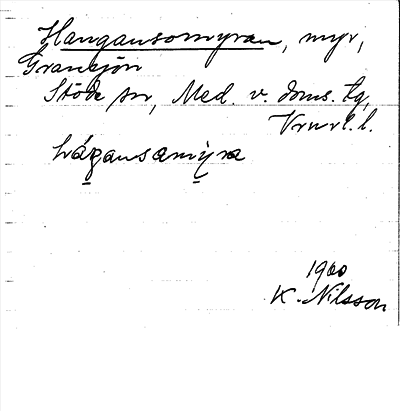 Hangansomyran, myr,
Gransjön
Stöde sn, Med. v. doms. tg,
Vrnrl. l.
hágansamyra
1900
K. Nilsson